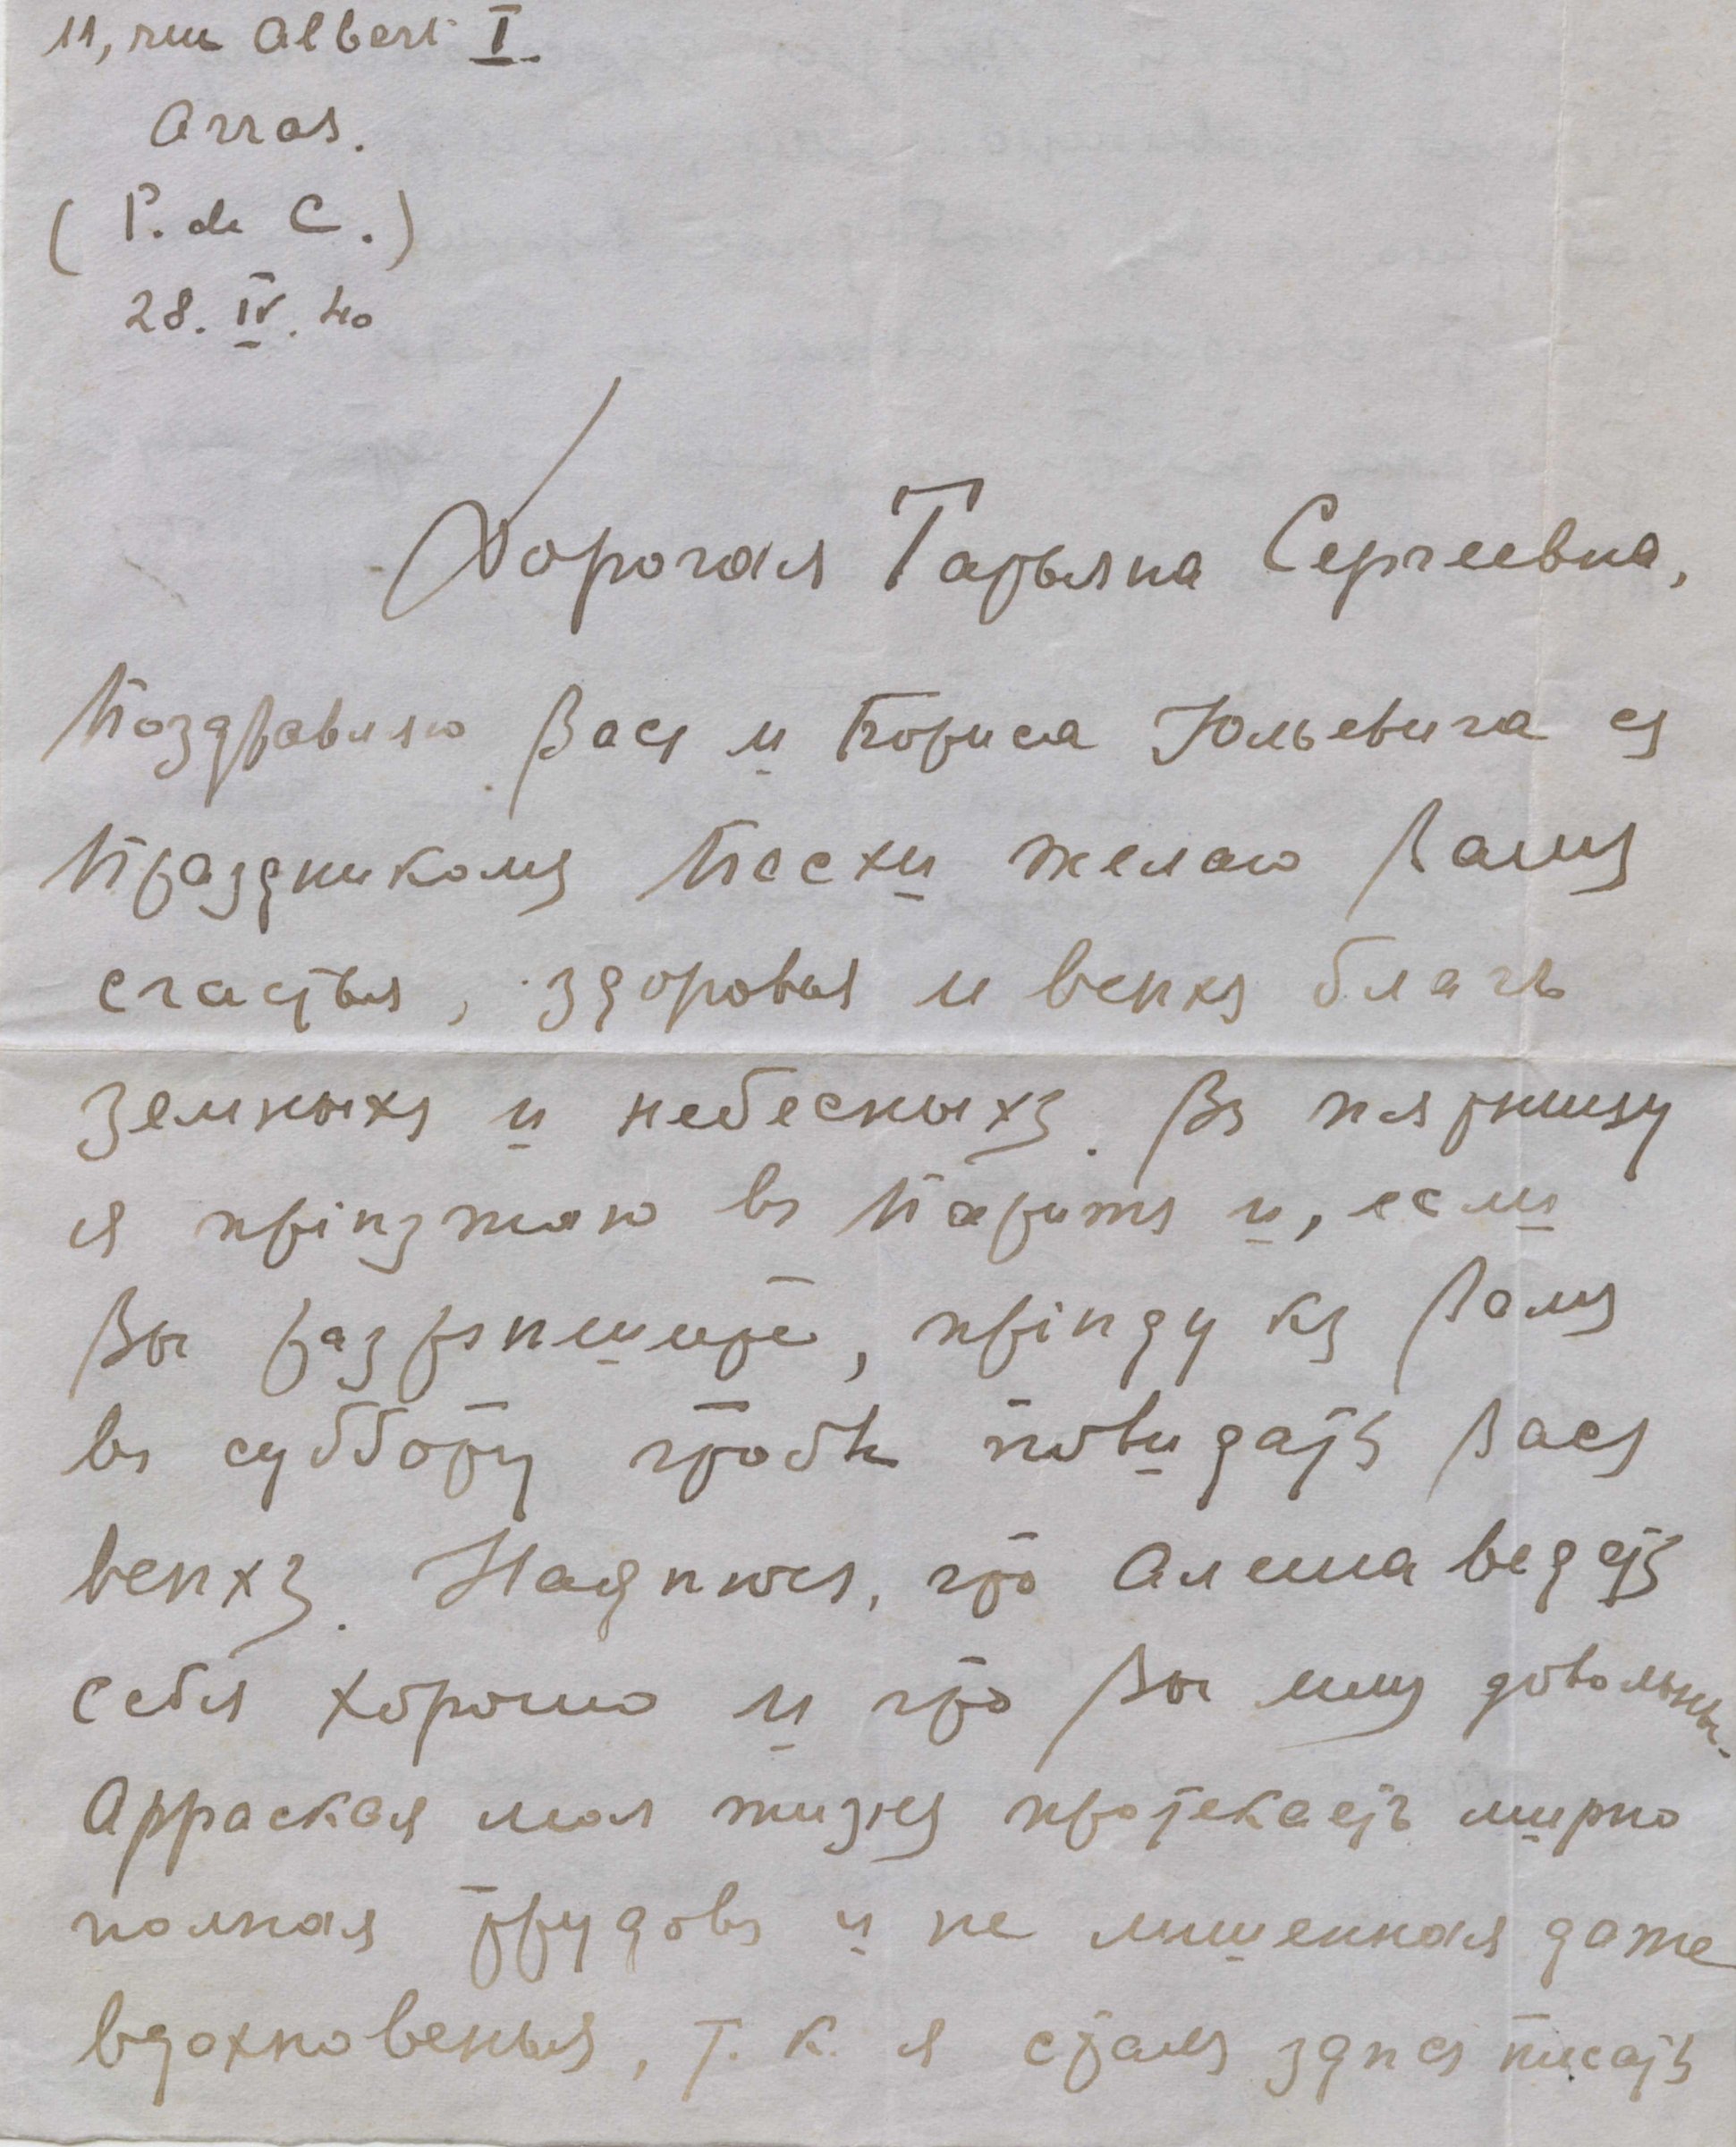 11, rue Albert I.
Arras.
(P. de C.)
28. IV. 40
Дорогая Татьяна Сергеевна,
Поздравляю Васъ и Бориса Юльевича съ
Праздникомъ Пасхи желаю Вамъ
счастья, здоровья и всѣхъ благъ
земныхъ и небесныхъ. Въ пятницу
я пріѣзжаю въ Парижъ и, если
Вы разрѣшите, пріѣду къ Вамъ
въ субботу чтобы повидать Васъ
всѣхъ. Надѣюсь, что Алеша ведетъ
себя хорошо и что Вы имъ довольны.
Арраская моя жизнь протекаетъ мирно
полная трудовъ и не лишенная даже
вдохновенья, т. к. я сталъ здѣсь писать